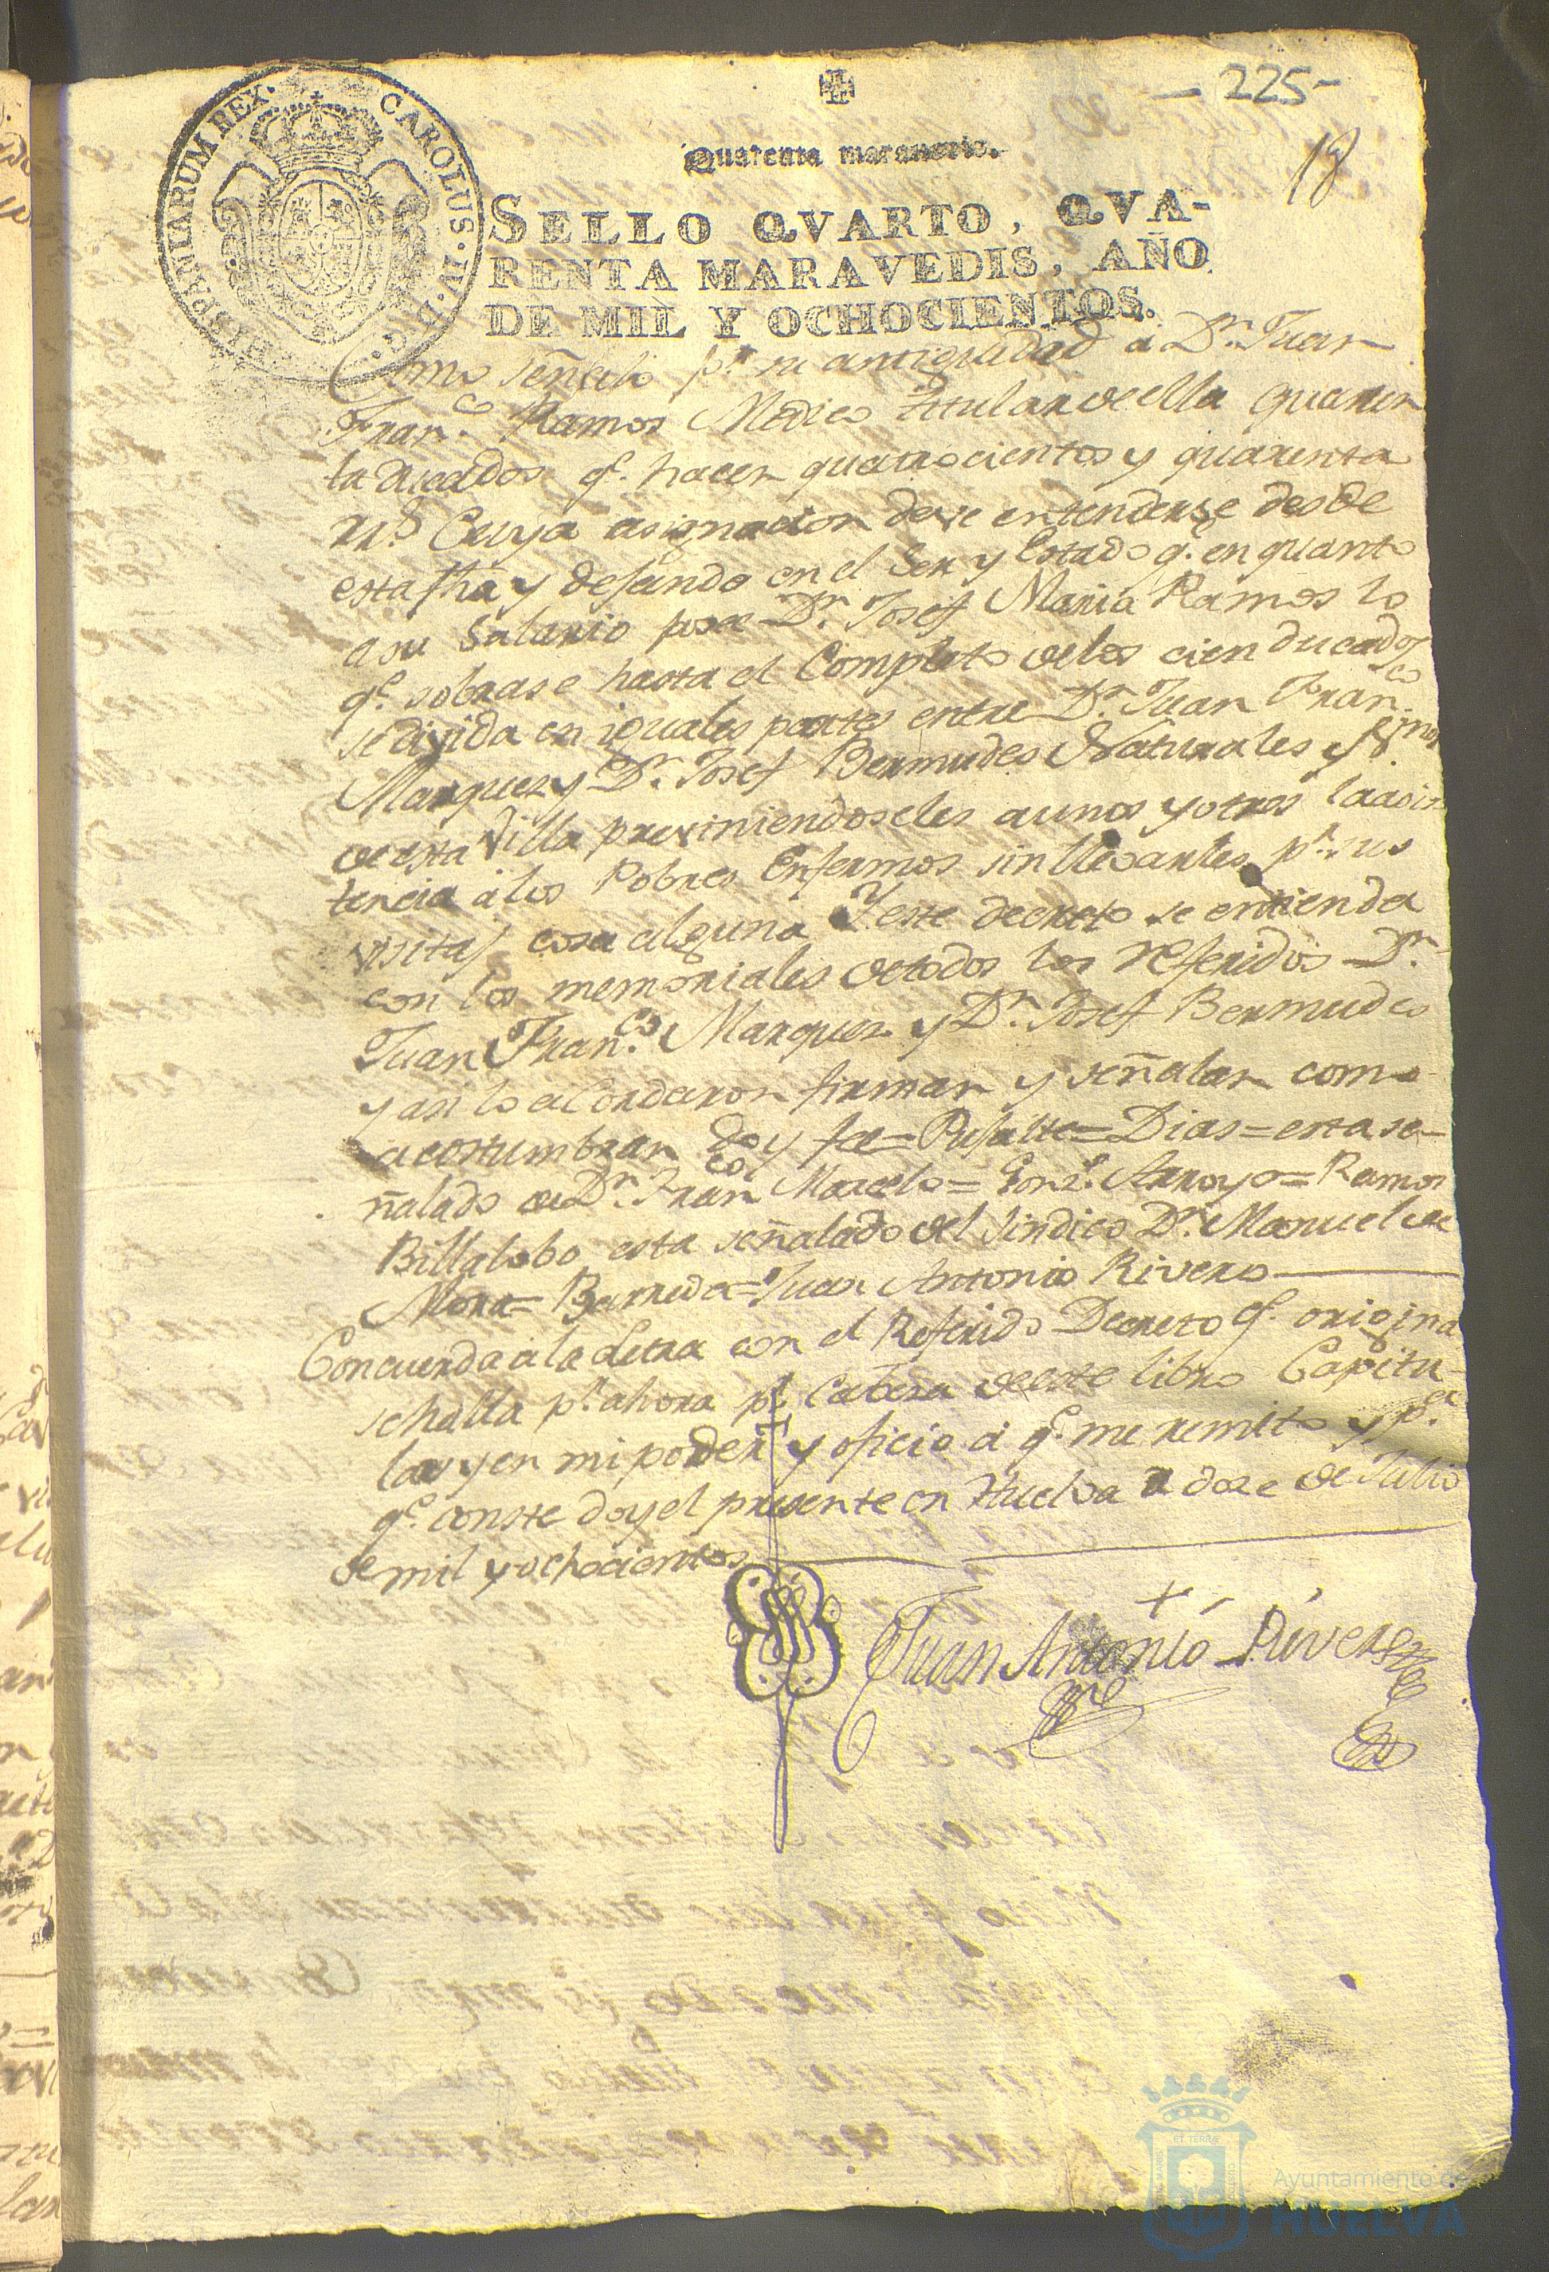 - 225 -
18
Quarenta maravedis.
HISPANIARUM REX. CAROLUS. IV. D. G.
SELLO QVARTO, QVA-
RENTA MARAVEDIS, AÑO
DE MIL Y OCHOCIENTOS.
Como señalo pr. su antiguedad a Dn. Juan
Franco. Ramos Medico titular de ella quaren
ta ducados q. hacen quatrocientos y quarenta
rrs. Cuya asignacion deve entenderse desde
esta fha y dejando en el ser y Estado q. en quanto
a su Salario posee Dn. Josef Maria Ramos lo
qe. sobrase hasta el Completo de los cien ducados
se divida en iguales partes entre Dn. Juan Franco.
Marquez y Dn. Josef Bermudes Naturales y
de esta Villa previniendoseles a unos y otros la asis
tencia a los Pobres Enfermos sin llevarles pr. sus
visitas cosa alguna Y este decreto se entienda
con los memoriales de todos los referidos Dn.
Juan Franco. Marquez y Dn. Josef Bermudes
y asi lo acordaron firman y señalan como
acostumbran doy fee= Pusalte= Dias= esta se-
ñalado de Dn. Franco Marcelo= Gonz. Arroyo= Ramos
Billalobo esta señalado del Sindico Dn. Manuel de
Mora= Barreda= Juan Antonio Rivero
Concuerda a la Letra con el Referido Decreto q. origina
se halla pr. ahora pr. Cabeza de este libro Capitu-
lar y en mi poder y oficio a qe. me remito y pa.
qe. conste doy el presente en Huelva a doze de Julio
de mil y ochocientos
Juan Antonio Rivero
Ayuntamiento de
HUELVA